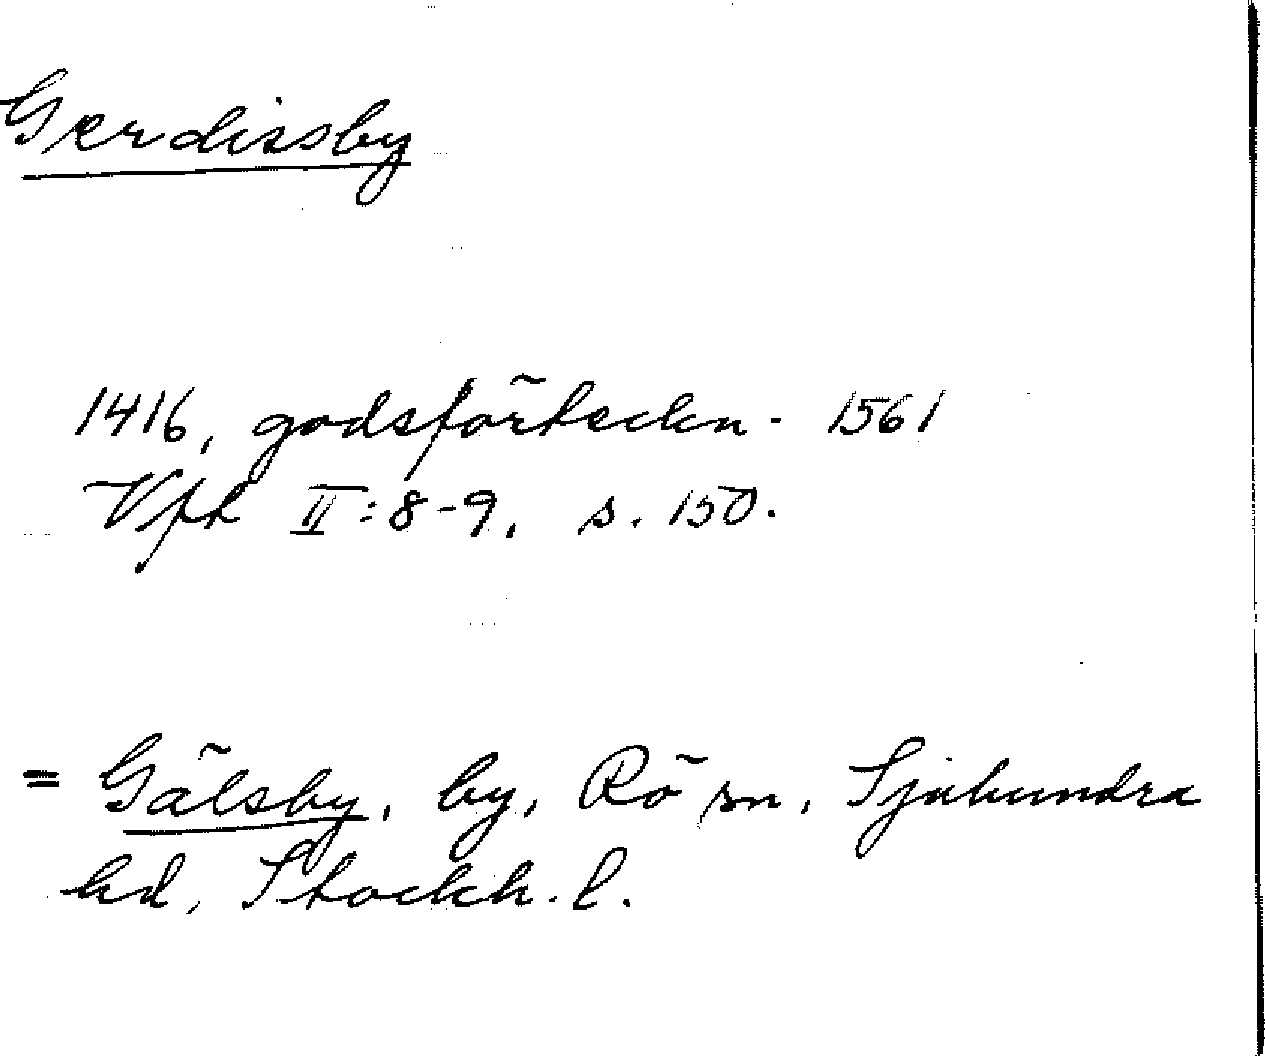 Gerdissby
1416, godsförteckn. 1561
Vfk II:8-9, s. 150.
= Gälsby, by, Rö sn, Sjuhundra
hd, Stockh. l.